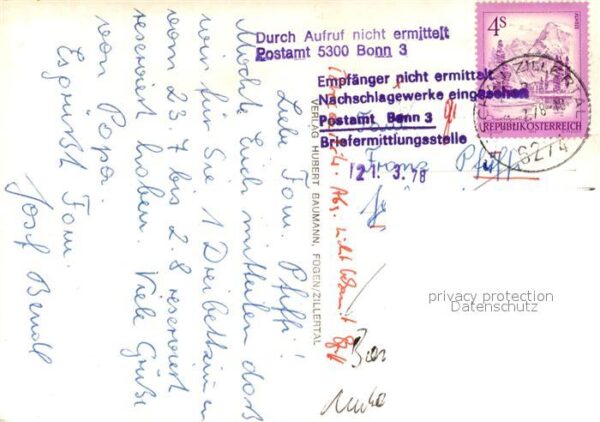 Durch Aufruf nicht ermittelt
Postamt 5300 Bonn 3
Empfänger nicht ermittelt
Nachschlagewerke eingesehen
Postamt Bonn 3
Briefermittlungsstelle
21. 3. 78
4S
REPUBLIK ÖSTERREICH
ZILLERTAL
6274
Liebe Fam. Pfeffi!
Möchte Euch mitteilen daß
wir für Sie 1 Dreibettzimmer
vom 23.7 bis 2.8 reserviert
reserviert haben. Viele Grüße
von Papa.
Es grüßt Fam.
Josef Bendl
VERLAG HUBERT BAUMANN, FÜGEN/ZILLERTAL
Abs. nicht bekannt
privacy protection
Datenschutz